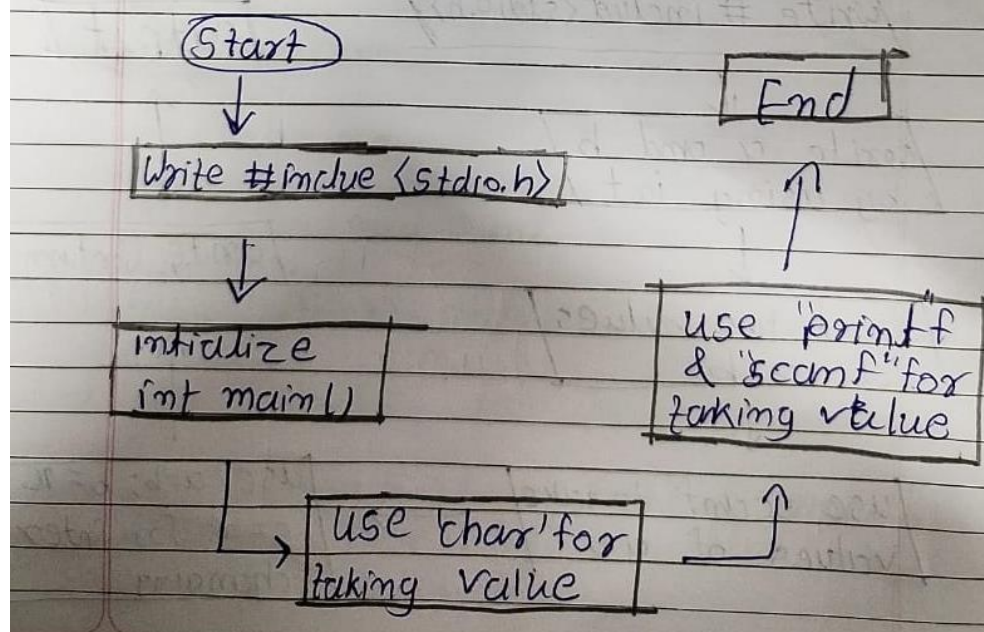 Start
Write #inclue <stdio.h>
intialize
int main()
use 'char' for
taking value
use "printf"
& "scanf" for
taking value
End